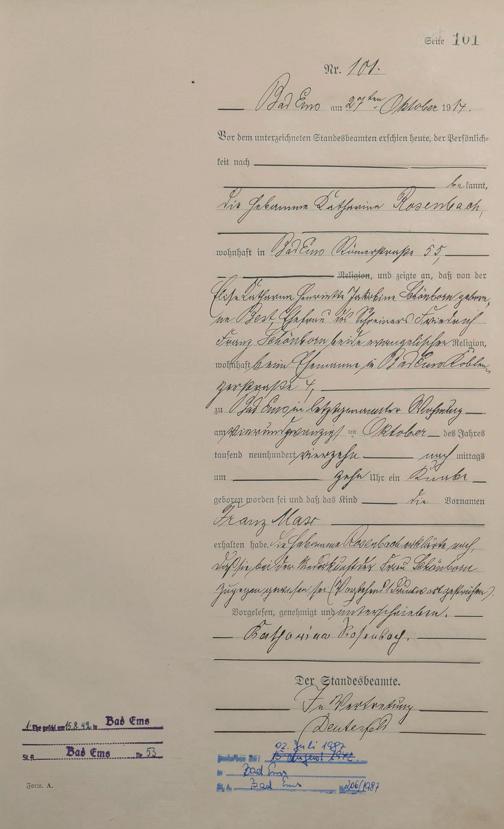 Seite 101
Nr. 101.
Bad Ems am 27ten Oktober 1914.
Vor dem unterzeichneten Standesbeamten erschien heute, der Persönlich-
keit nach
bekannt,
die Hebamme Katharina Rosenbach,
wohnhaft in Bad Ems Römerstraße 55,
Religion, und zeigte an, daß von der
Elise Katharina Henriette Jakobine Schönborn gebore-
ne Best, Ehefrau des Schreiners Friedrich
Franz Schönborn beide evangelischer Religion,
wohnhaft beim Ehemanne in Bad Ems Koblen-
zerstraße 4,
zu Bad Ems in letztgenannter Wohnung
am vierundzwanzigsten Oktober des Jahres
tausend neunhundert vierzehn nach mittags
um zehn Uhr ein Knabe
geboren worden sei und daß das Kind die Vornamen
Franz Max
erhalten habe. Die Hebamme Rosenbach erklärte noch,
daß sie bei der Niederkunft der Frau Schönborn
zugegen gewesen sei. (Vorstehend Druckwort gestrichen)
Vorgelesen, genehmigt und unterschrieben.
Katharina Rosenbach.
Der Standesbeamte.
In Vertretung
1. Ehe geschl. am 15.8.42 in Bad Ems
St. A. Bad Ems Nr. 53
02. Juli 1987
in Bad Ems
St. A. Bad Ems 206/1987
Form. A.